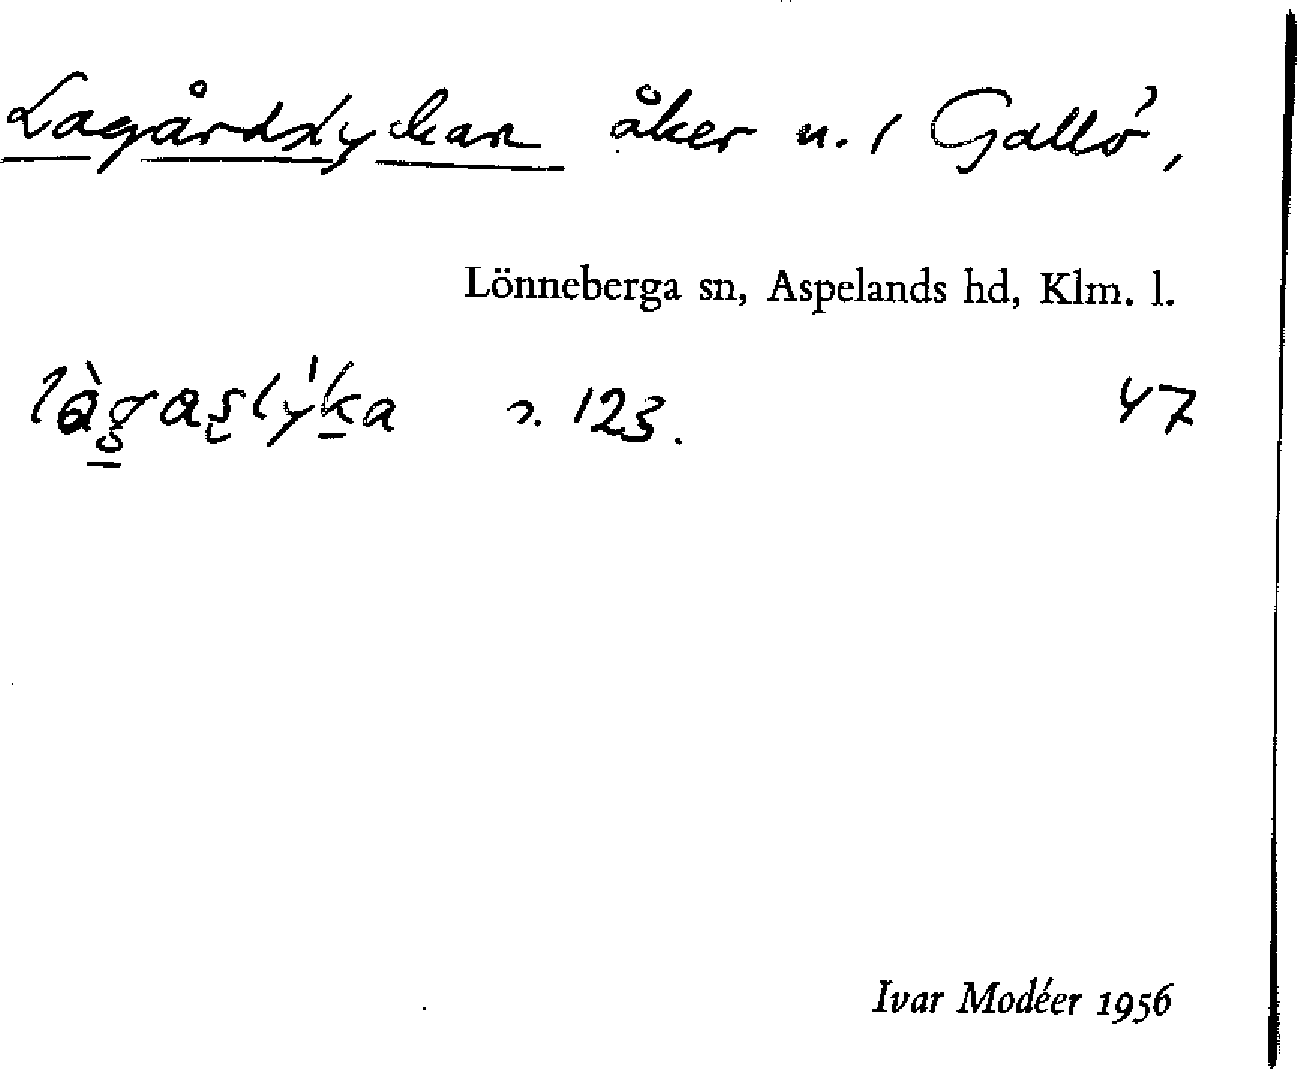 Lagårdslyckan åker n. 1 Gallö,
Lönneberga sn, Aspelands hd, Klm. l.
s. 123. 47
Ivar Modéer 1956